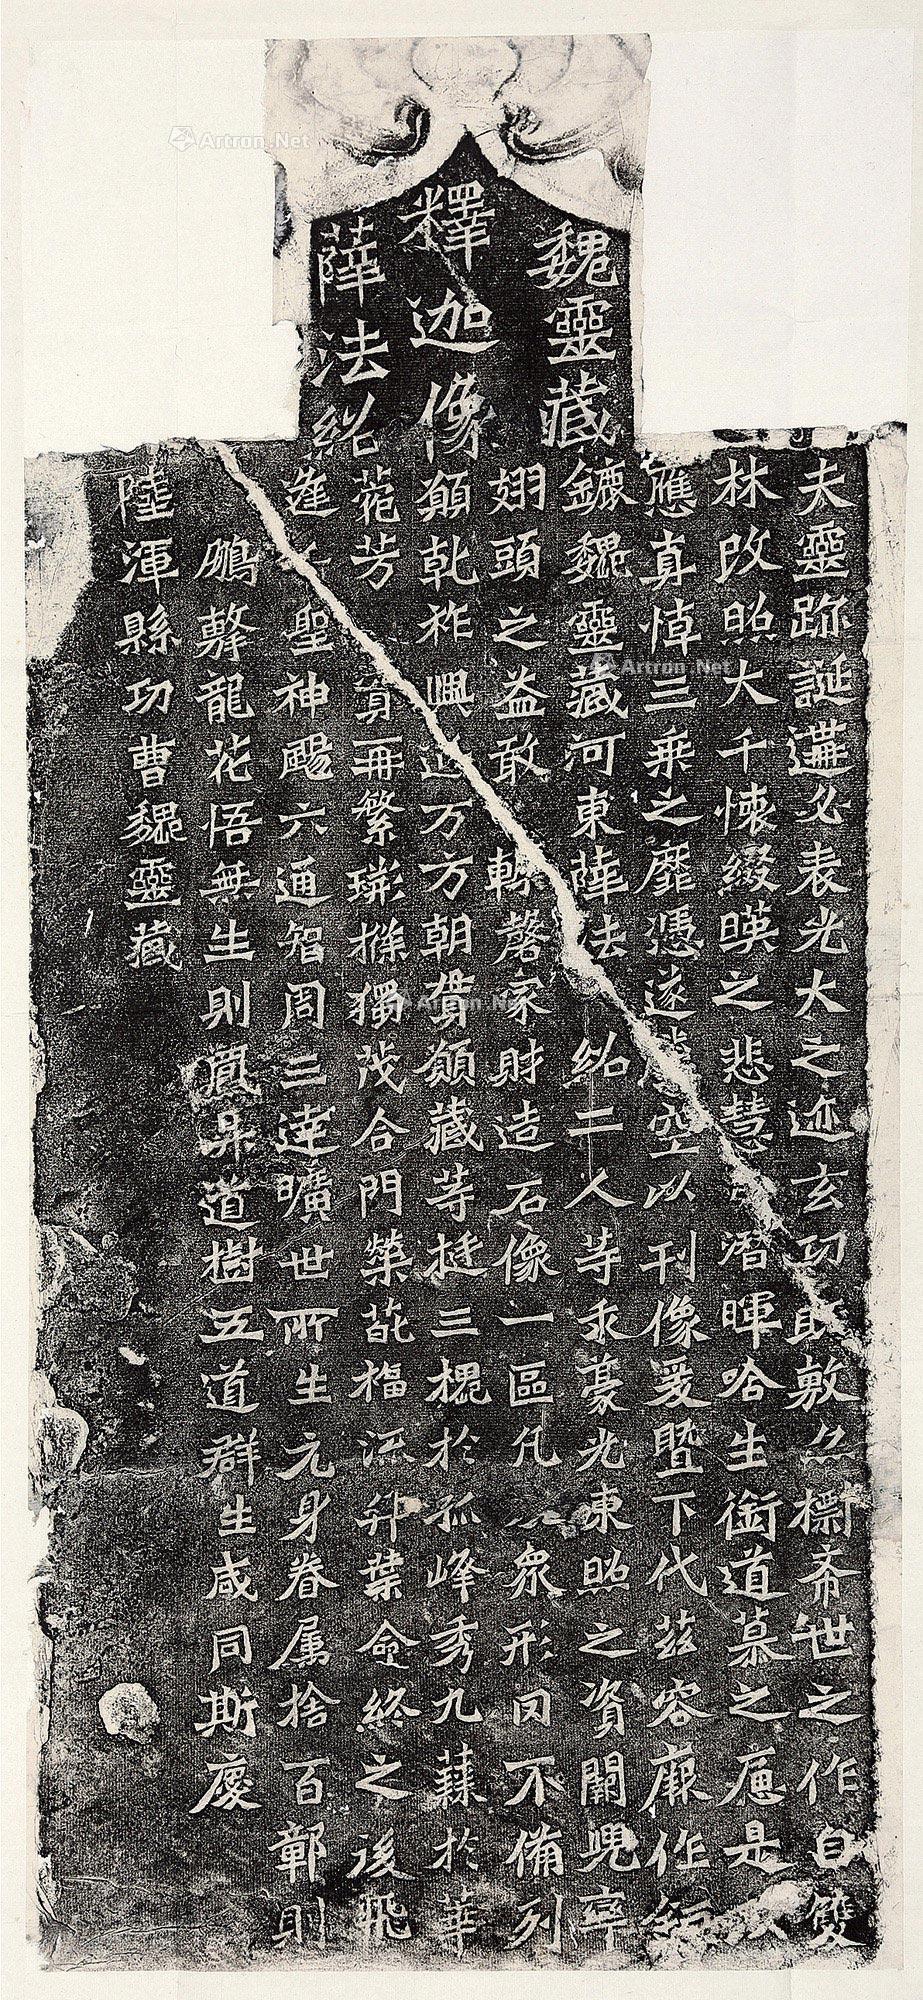 魏靈藏
釋迦像
薛法紹
夫靈跡誕遘必表光大之迹玄功既敷亦標希世之作自雙
林改照大千懷綴暎之悲慧潛暉哈生銜道慕之痛是以
應真悼三乘之靡憑遂空以刊像爰暨下代茲容厥作
鉅鹿魏靈藏河東薛法紹二人等求豪光東照之資闕兜率
翅頭之益敢輒磬家財造石像一區凡眾形罔不備列
願乾祚興延万方朝貫願藏等挺三槐於孤峰秀九蕀於華
菀芳實再繁荊條獨茂合門榮葩福流奕葉命終之後飛
逢聖神颺六通智周三達曠世所生元身眷属捨百鄣則
鵬擊龍花悟無生則鳳昇道樹五道群生咸同斯慶
陸渾縣功曹魏靈藏
Artron.Net
Artron.Net
Artron.Net
Artron.Net